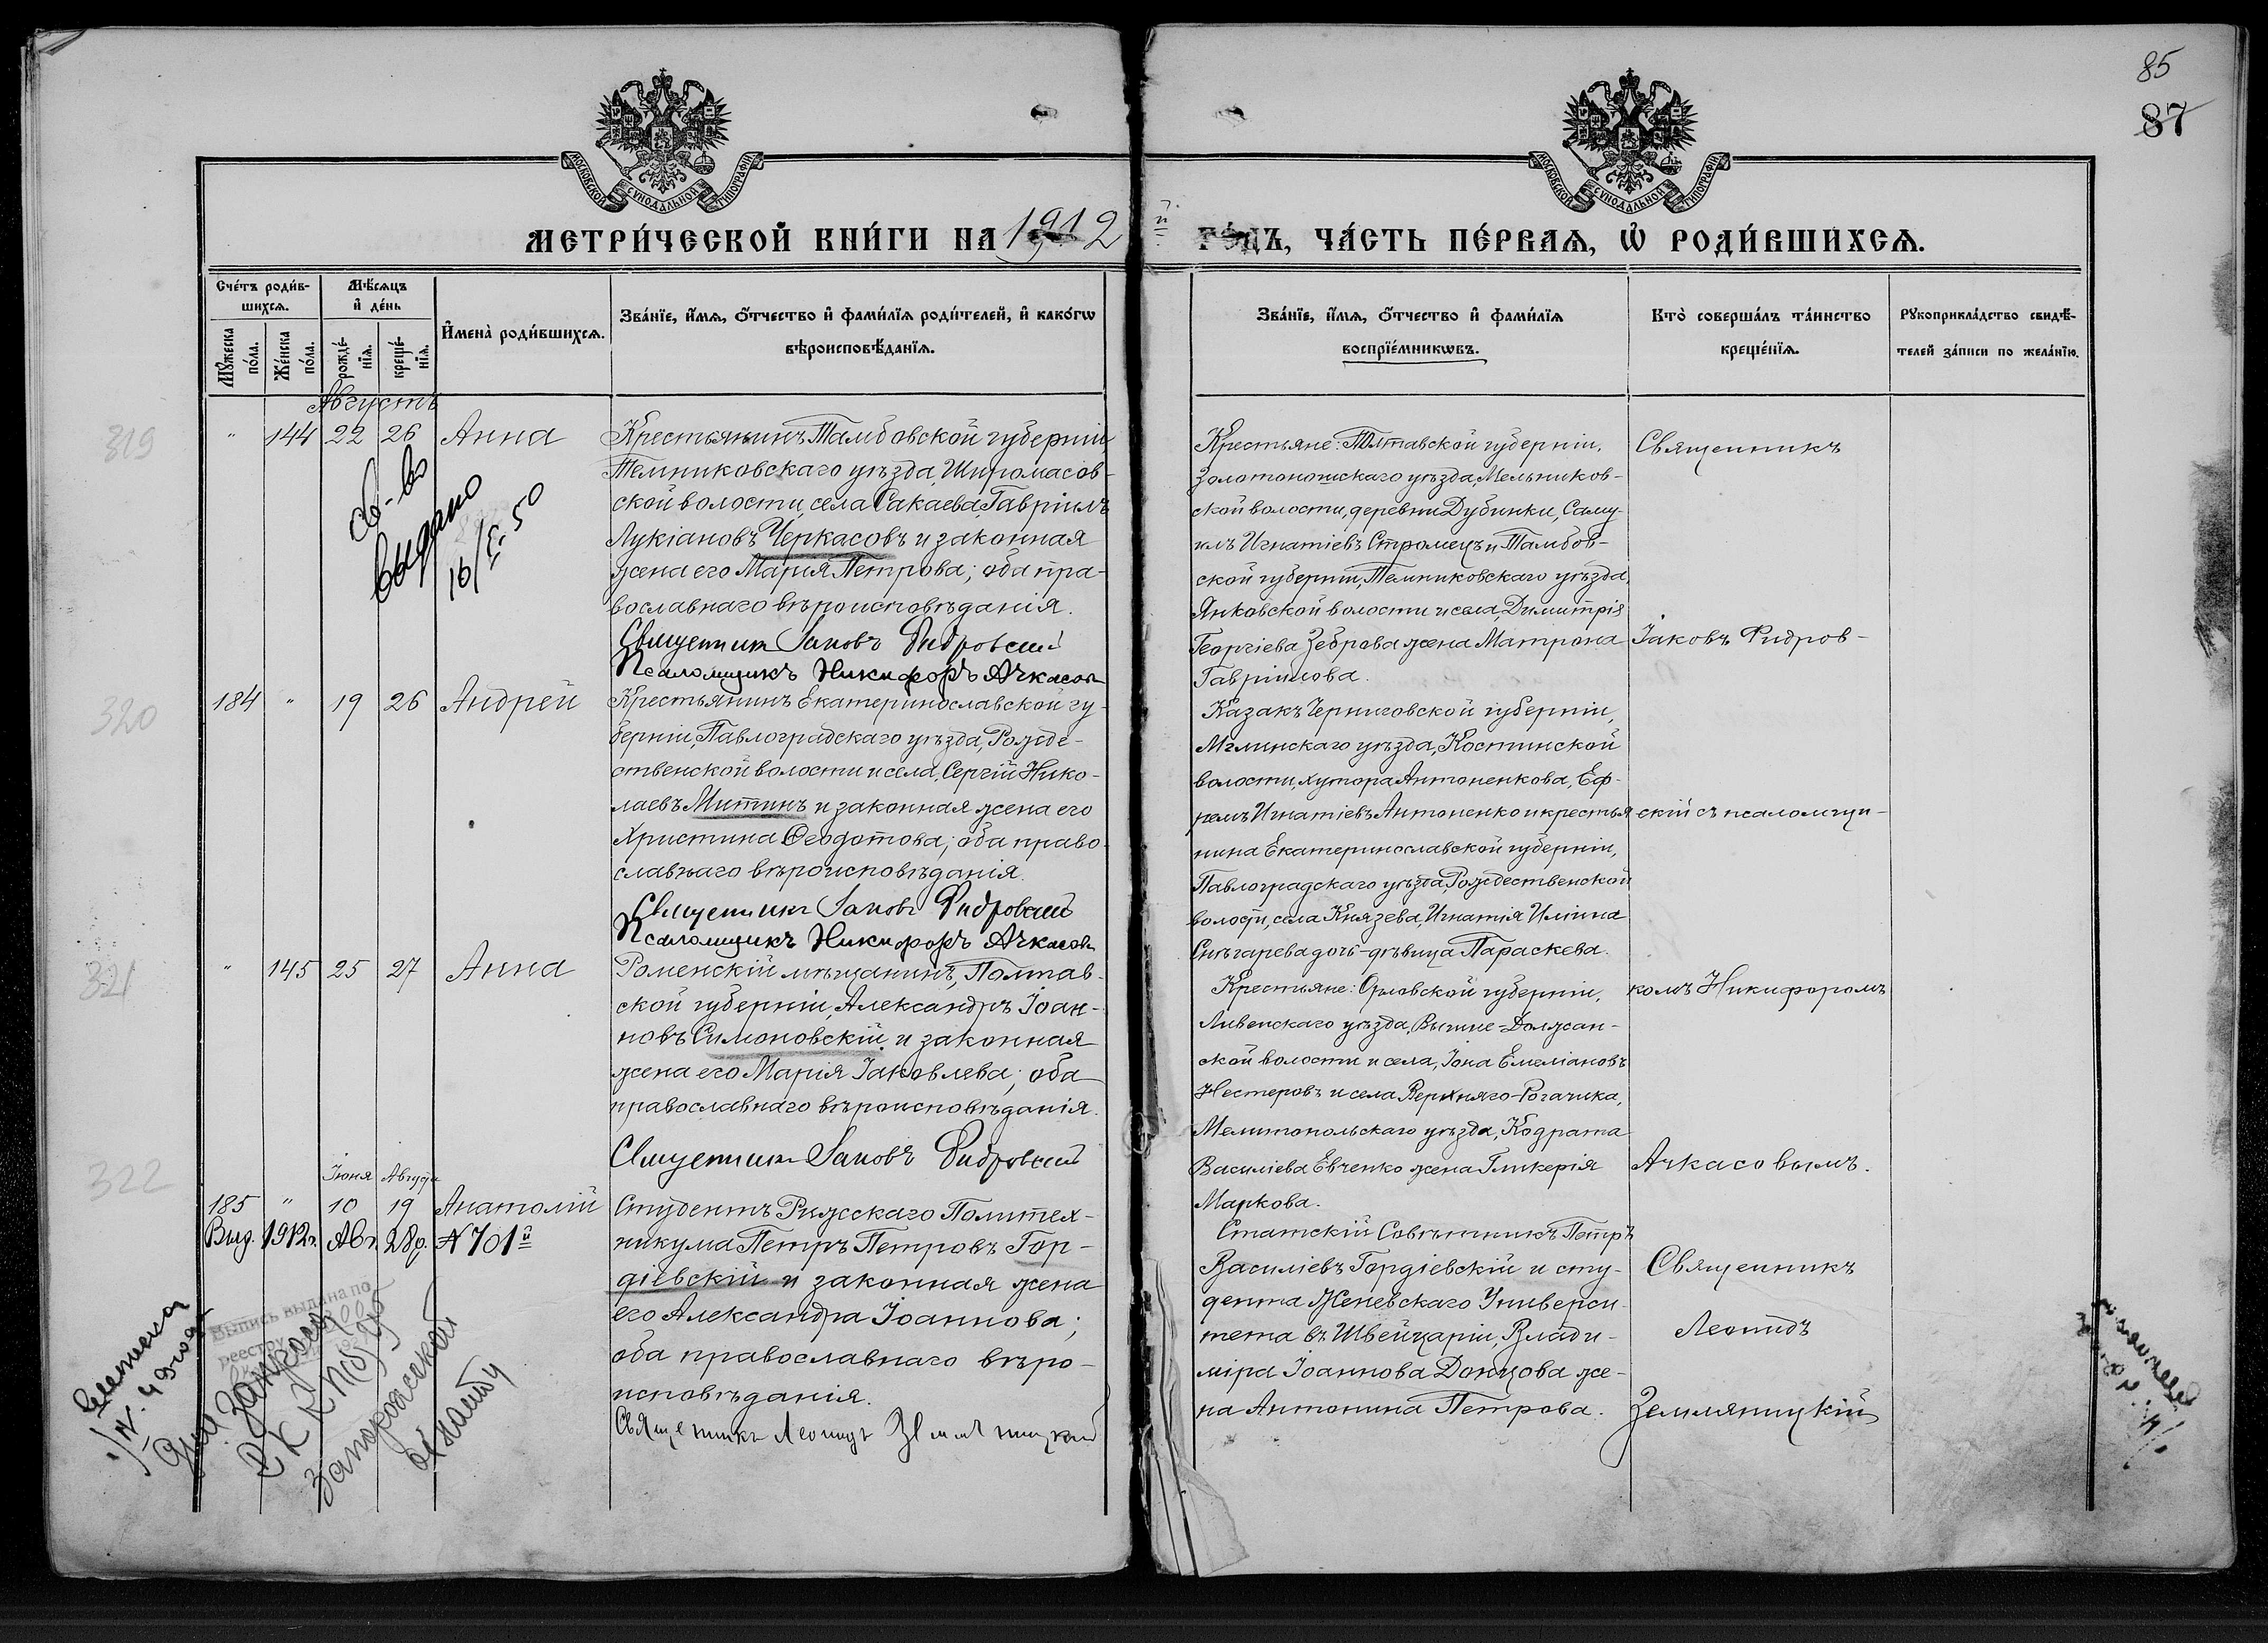 85
87
МОСКОВСКОЙ СѴНОДАЛЬНОЙ ТИПОГРАФІИ
МОСКОВСКОЙ СѴНОДАЛЬНОЙ ТИПОГРАФІИ
МЕТРИ́ЧЕСКОЙ КНИ́ГИ НА 1912 й ГО́ДЪ, ЧА́СТЬ ПЕ́РВАѦ, Ѡ҆ РОДИ́ВШИХСѦ.
Сче́тъ роди́в-
шихсѧ.
Мꙋ́жеска по́ла.
Же́нска по́ла.
Мѣ́сѧцъ
и҆ де́нь
рожде́-
нїѧ.
креще́-
нїѧ.
И҆мена̀ роди́вшихсѧ.
Зва́нїе, и҆́мѧ, ѻ҆́тчество и҆ фами́лїѧ роди́телей, и҆ како́гѡ
вѣроисповѣ́данїѧ.
Зва́нїе, и҆́мѧ, ѻ҆́тчество и҆ фами́лїѧ
воспрїе́мникѡвъ.
Кто̀ соверша́лъ та́инство
креще́нїѧ.
Рꙋкоприкла́дство свидѣ́-
телей за́писи по жела́нїю.
Августъ
319
" 144 22 26 Анна
Крестьянинъ Тамбовской губерніи,
Темниковскаго уѣзда, Широмасов-
ской волости, села Сакаева, Гавріилъ
Лукіановъ Черкасовъ и законная
жена его Марія Петрова; оба пра-
вославнаго вѣроисповѣданія.
Священникъ Іаковъ Фидровскій
Псаломщикъ Никифоръ Ачкасовъ
св-во
выдано
16/X-50
Крестьяне: Полтавской губерніи,
Золотоношскаго уѣзда, Мельников-
ской волости, деревни Дубинки, Саму-
илъ Игнатіевъ Стромецъ и Тамбов-
ской губерніи, Темниковскаго уѣзда,
Янковской волости и села, Димитрія
Георгіева Зеброва жена Матрона
Гавріилова.
Священникъ
Іаковъ Фидров-
320
184 " 19 26 Андрей
Крестьянинъ Екатеринославской гу-
берніи, Павлоградскаго уѣзда, Рожде-
ственской волости и села, Сергій Нико-
лаевъ Митинъ и законная жена его
Христина Ѳеодотова; оба право-
славнаго вѣроисповѣданія.
Священникъ Іаковъ Фидровскій
Псаломщикъ Никифоръ Ачкасовъ
Казакъ Черниговской губерніи,
Мглинскаго уѣзда, Костинской
волости, хутора Антоненкова, Еф-
ремъ Игнатіевъ Антоненко и крестья-
нина Екатеринославской губерніи,
Павлоградскаго уѣзда, Рождественской
волости, села Князева, Игнатія Иліина
Снѣгарева дочь-дѣвица Параскева.
скій съ псаломщи-
321
" 145 25 27 Анна
Роменскій мѣщанинъ, Полтав-
ской губерніи, Александръ Іоан-
новъ Симоновскій и законная
жена его Марія Іаковлева; оба
православнаго вѣроисповѣданія.
Священникъ Іаковъ Фидровскій
Крестьяне: Орловской губерніи,
Ливенскаго уѣзда, Вышне-Должан-
ской волости и села, Іона Емеліановъ
Нестеровъ и села Верхняго-Рогачика,
Мелитопольскаго уѣзда, Кодрата
Василіева Евченко жена Гликерія
Маркова.
комъ Никифоромъ
Ачкасовымъ.
322
Іюня Августа
185 " 10 19 Анатолій
Выд. 1912г. Авг. 28д. № 701й
Студентъ Рижскаго Политех-
никума Петръ Петровъ Гор-
діевскій и законная жена
его Александра Іоаннова;
оба православнаго вѣро-
исповѣданія.
Священникъ Леонидъ Земляницкій
Статскій Совѣтникъ Петръ
Василіевъ Гордіевскій и сту-
дента Женевскаго Универси-
тета въ Швейцаріи, Влади-
міра Іоаннова Донцова же-
на Антонина Петрова.
Священникъ
Леонидъ
Земляницкій
Выпись выдана по
реестру